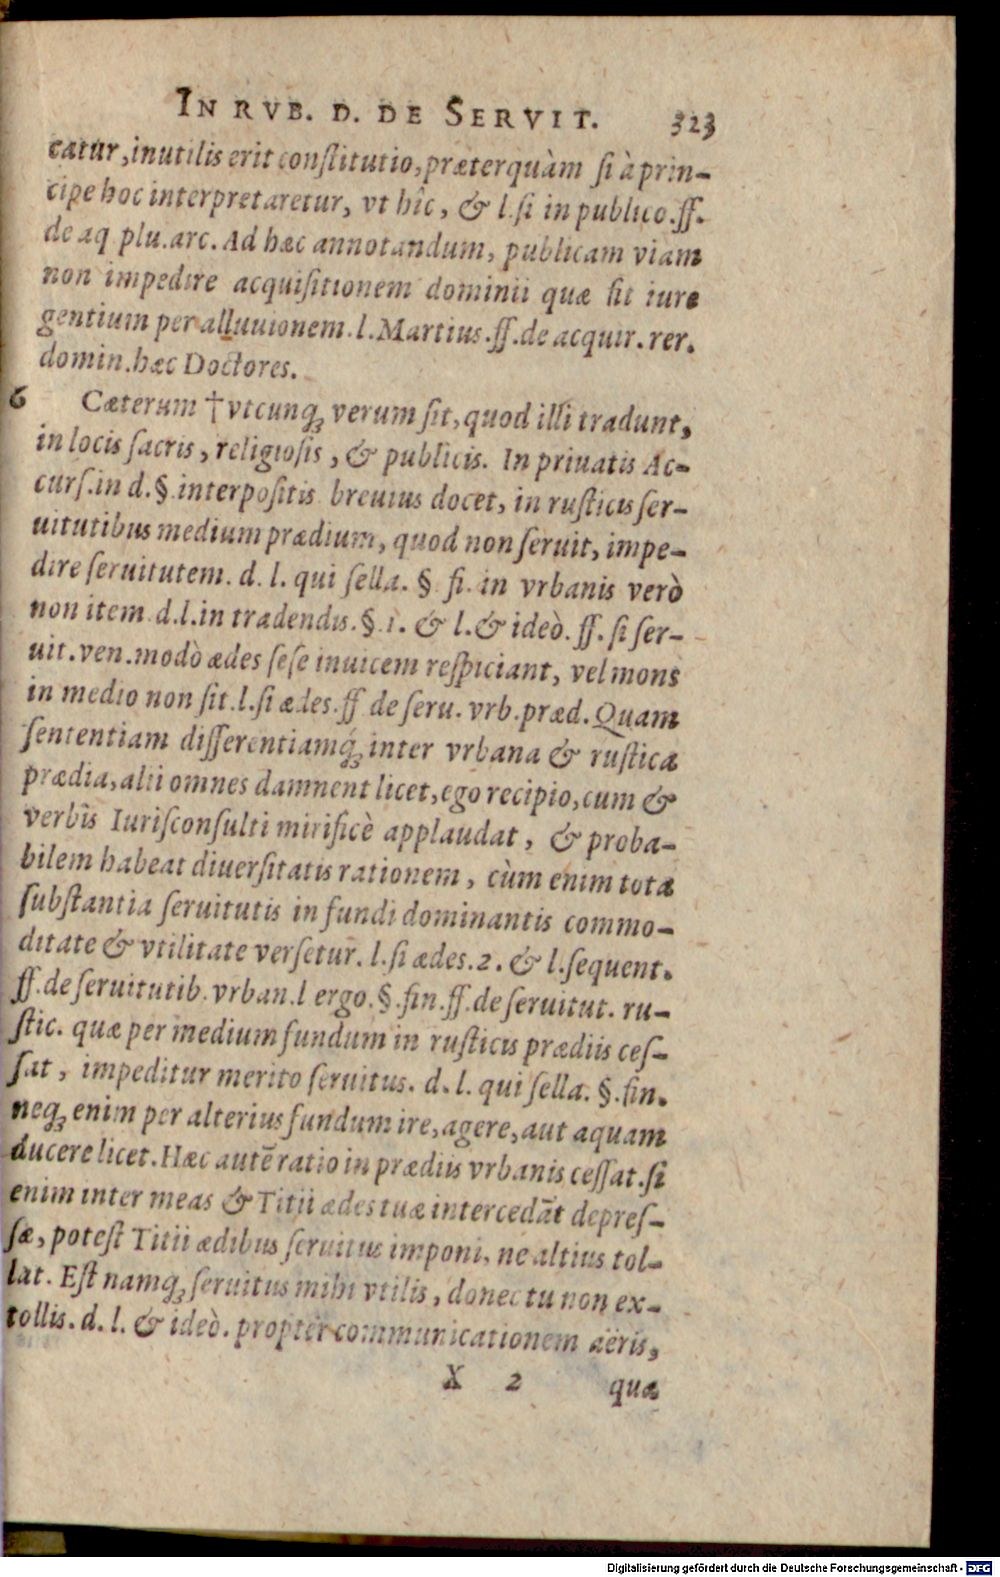 IN RVB. D. DE SERVIT. 323
catur, inutilis erit constitutio, præterquàm si à prin-
cipe hoc interpretaretur, vt hîc, & l. si in publico. ff.
de aq plu. arc. Ad hæc annotandum, publicam viam
non impedire acquisitionem dominii quæ fit iure
gentium per alluuionem. l. Martius. ff. de acquir. rer.
domin. hæc Doctores.
6 Cæterum † vtcunq; verum sit, quod illi tradunt,
in locis sacris, religiosis, & publicis. In priuatis Ac-
curs. in d. §. interpositis breuius docet, in rusticis ser-
uitutibus medium prædium, quod non seruit, impe-
dire seruitutem. d. l. qui sella. § fi. in vrbanis verò
non item d. l. in tradendis. §. 1. & l. & ideò. ff. si ser-
uit. ven. modò ædes sese inuicem respiciant, vel mons
in medio non sit. l. si ædes. ff de seru. vrb. præd. Quam
sententiam differentiamq́; inter vrbana & rustica
prædia, alii omnes damnent licet, ego recipio, cum &
verbis Iurisconsulti mirificè applaudat, & proba-
bilem habeat diuersitatis rationem, cùm enim tota
substantia seruitutis in fundi dominantis commo-
ditate & vtilitate versetur. l. si ædes. 2. & l. sequent.
ff. de seruitutib. vrban. l ergo. §. fin. ff. de seruitut. ru-
stic. quæ per medium fundum in rusticis prædiis ces-
sat, impeditur merito seruitus. d. l. qui sella. §. fin.
neq; enim per alterius fundum ire, agere, aut aquam
ducere licet. Hæc autē ratio in prædiis vrbanis cessat. si
enim inter meas & Titii ædes tuæ intercedāt depres-
sæ, potest Titii ædibus seruitus imponi, ne altius tol-
lat. Est namq; seruitus mihi vtilis, donec tu non ex-
tollis. d. l. & ideò. propter communicationem aëris,
X 2 quæ
Digitalisierung gefördert durch die Deutsche Forschungsgemeinschaft - DFG